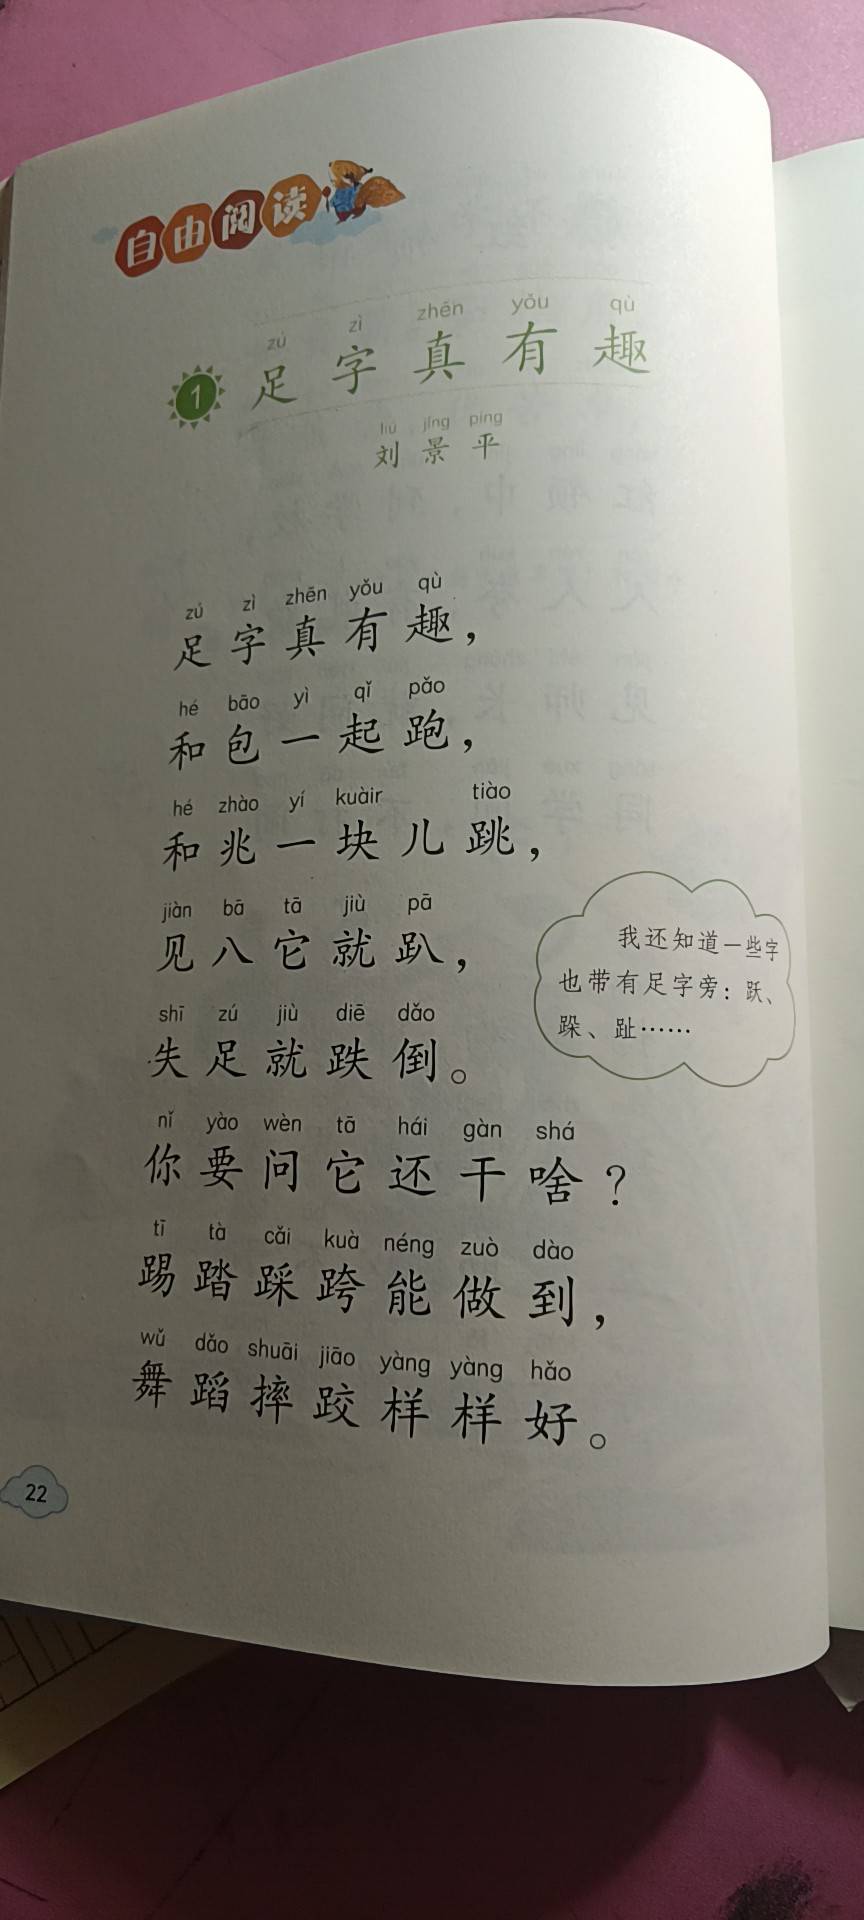 自由阅读
zú zì zhēn yǒu qù
1 足字真有趣
liú jǐng píng
刘景平
zú zì zhēn yǒu qù
足字真有趣，
hé bāo yì qǐ pǎo
和包一起跑，
hé zhào yí kuàir tiào
和兆一块儿跳，
jiàn bā tā jiù pā
见八它就趴，
shī zú jiù diē dǎo
失足就跌倒。
nǐ yào wèn tā hái gàn shá
你要问它还干啥？
tī tà cǎi kuà néng zuò dào
踢踏踩跨能做到，
wǔ dǎo shuāi jiāo yàng yàng hǎo
舞蹈摔跤样样好。
我还知道一些字
也带有足字旁：跃、
跺、趾……
22